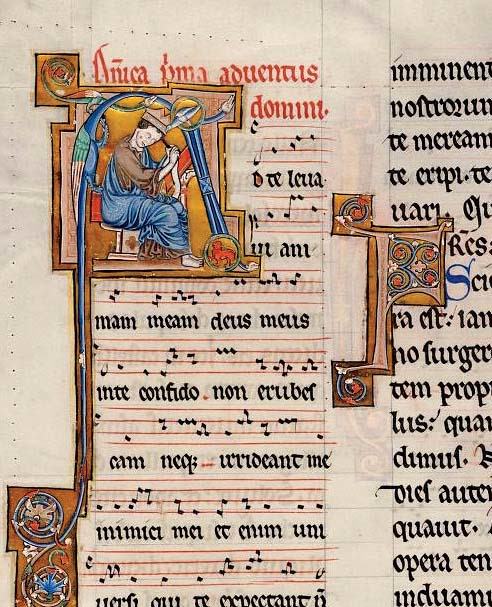 Dñica p̄ma aduentus
domini.
D te leua
ui ani
mam meam deus meus
inte confido . non erubes
cam neq; irrideant me
inimici mei et enim uni
uersi qui te expectant n̄
imminent
nostrorum
te meream
te eripi. te
uari. Qu
Scie
ra est: iam
no surger
tem propi
lus: quan
dimus. N
dies autem
quauit.
opera ten
induamu